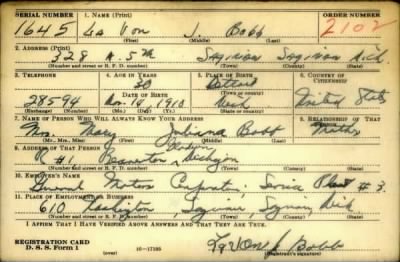 SERIAL NUMBER 1. NAME (Print) ORDER NUMBER
1645 La Von J. Bobb 2102
(First) (Middle) (Last)
2. ADDRESS (Print)
328 N. 5th Saginaw Saginaw Mich.
(Number and street or R. F. D. number) (Town) (County) (State)
3. TELEPHONE 4. AGE IN YEARS 5. PLACE OF BIRTH 6. COUNTRY OF CITIZENSHIP
Detroit
DATE OF BIRTH (Town or county)
28594 Nov. 14 1910 Mich. United States
(Exchange) (Number) (Mo.) (Day) (Yr.) (State or country)
7. NAME OF PERSON WHO WILL ALWAYS KNOW YOUR ADDRESS 8. RELATIONSHIP OF THAT PERSON
Mrs. Mary Juliana Bobb Mother
(Mr., Mrs., Miss) (First) (Middle) (Last)
9. ADDRESS OF THAT PERSON Gladwin
R #1 Beaverton Michigan
(Number and street or R. F. D. number) (Town) (County) (State)
10. EMPLOYER'S NAME
General Motors Corporation, Plant #3.
11. PLACE OF EMPLOYMENT OR BUSINESS
610 Washington, Saginaw, Saginaw, Mich
(Number and street or R. F. D. number) (Town) (County) (State)
I AFFIRM THAT I HAVE VERIFIED ABOVE ANSWERS AND THAT THEY ARE TRUE.
REGISTRATION CARD
D. S. S. Form 1 (over) 16—17105 LaVon J Bobb
(Registrant's signature)